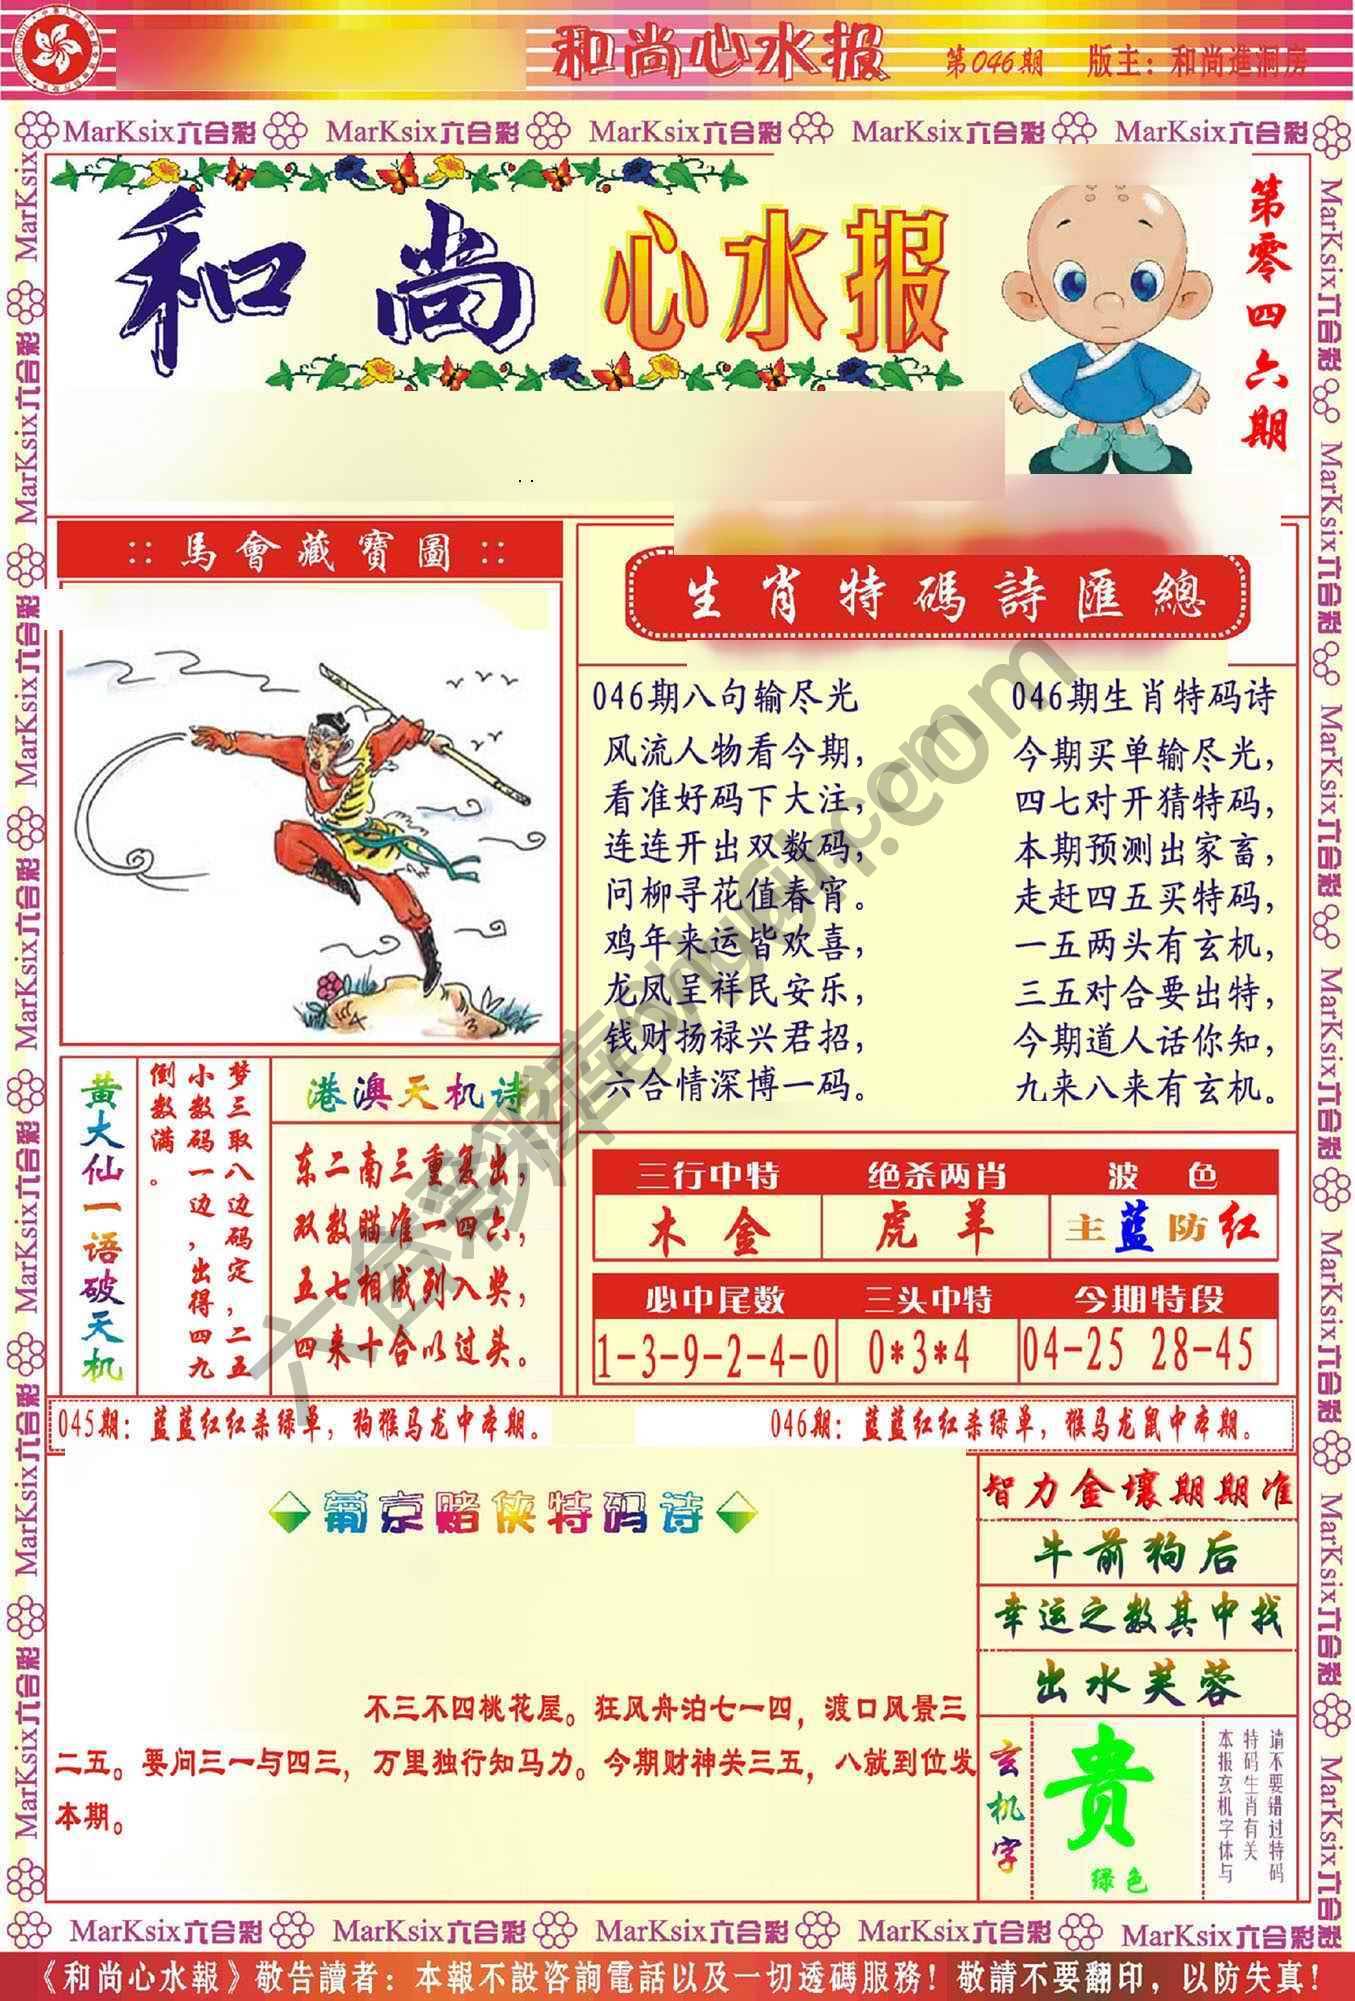 和尚心水报 第046期 版主：和尚進洞房
MarKsix六合彩 MarKsix六合彩 MarKsix六合彩 MarKsix六合彩 MarKsix六合彩
和尚 心水报
第零四六期
:: 馬會藏寶圖 ::
生肖特碼詩匯總
046期八句输尽光
风流人物看今期，
看准好码下大注，
连连开出双数码，
问柳寻花值春宵。
鸡年来运皆欢喜，
龙凤呈祥民安乐，
钱财扬禄兴君招，
六合情深博一码。
046期生肖特码诗
今期买单输尽光，
四七对开猜特码，
本期预测出家畜，
走赶四五买特码，
一五两头有玄机，
三五对合要出特，
今期道人话你知，
九来八来有玄机。
黄大仙一语破天机
梦三取八边码定，二五
小数码一边，出得四九
倒数满。
港澳天机诗
东二南三重复出，
双数瞄准一四六，
五七相成列入奖，
四来十合以过头。
三行中特 绝杀两肖 波 色
木 金 虎 羊 主蓝防红
必中尾数 三头中特 今期特段
1-3-9-2-4-0 0*3*4 04-25 28-45
045期：蓝蓝红红杀绿单，狗猴马龙中本期。
046期：蓝蓝红红杀绿单，猴马龙鼠中本期。
葡京赌侠特码诗
不三不四桃花屋。狂风舟泊七一四，渡口风景三
二五。要问三一与四三，万里独行知马力。今期财神关三五，八就到位发
本期。
智力金壤期期准
牛前狗后
幸运之数其中找
出水芙蓉
玄机字
贵
绿色
请不要错过特码
特码生肖有关
本报玄机字体与
MarKsix六合彩 MarKsix六合彩 MarKsix六合彩 MarKsix六合彩 MarKsix六合彩
《和尚心水報》敬告讀者：本報不設咨詢電話以及一切透碼服務！敬請不要翻印，以防失真！